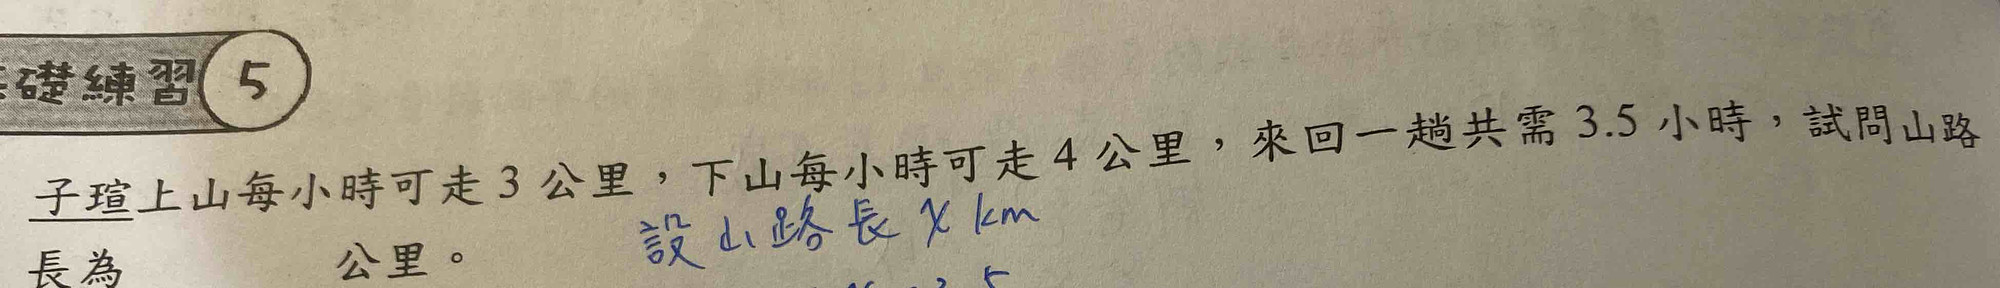 礎練習 5
子瑄上山每小時可走 3 公里，下山每小時可走 4 公里，來回一趟共需 3.5 小時，試問山路
長為 公里。
設山路長 x km